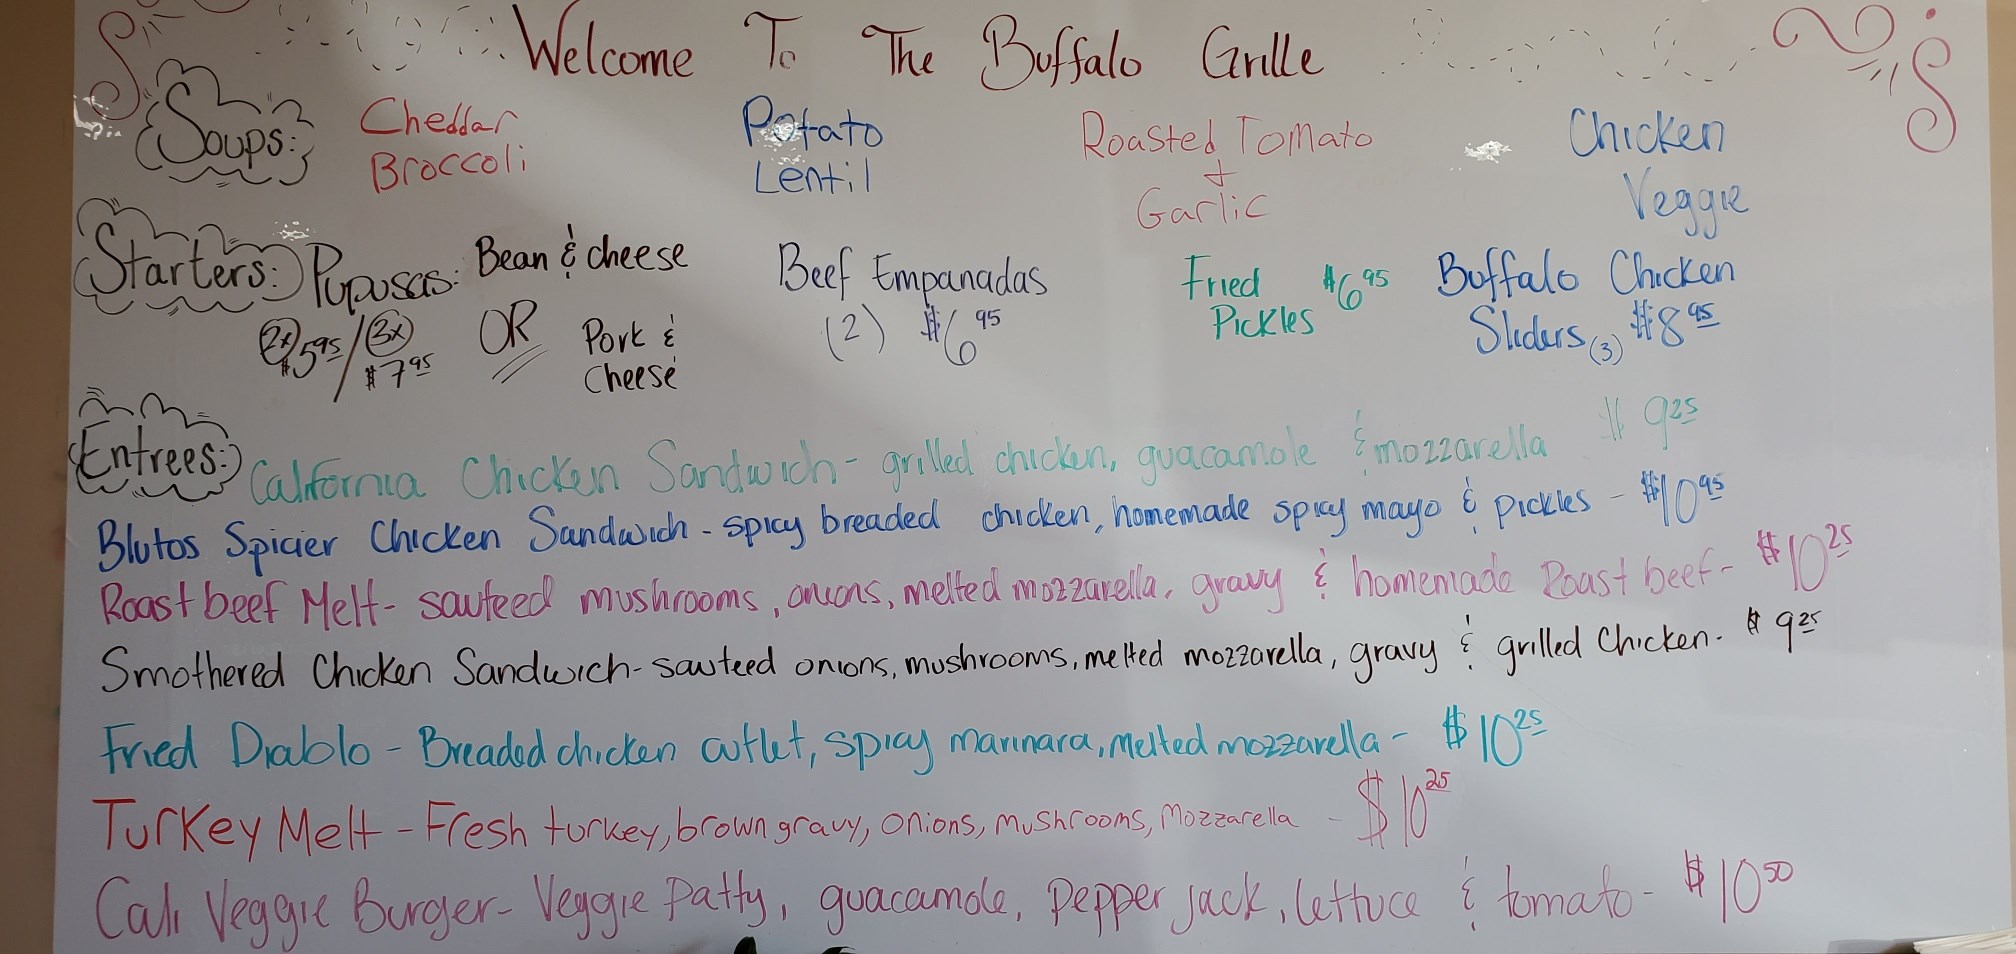 Welcome To The Buffalo Grille
Soups:
Cheddar
Broccoli
Potato
Lentil
Roasted Tomato
+
Garlic
Chicken
Veggie
Starters:
Pupusas:
Bean & cheese
2x $5 95 / 3x $7 95
OR
Pork &
Cheese
Beef Empanadas
(2) $6 95
Fried
Pickles
$6 95
Buffalo Chicken
Sliders (3) $8 95
Entrees:
California Chicken Sandwich - grilled chicken, guacamole & mozzarella $9 25
Blutos Spicier Chicken Sandwich - spicy breaded chicken, homemade spicy mayo & pickles - $10 95
Roast beef Melt - sauteed mushrooms, onions, melted mozzarella, gravy & homemade Roast beef - $10 25
Smothered Chicken Sandwich - sauteed onions, mushrooms, melted mozzarella, gravy & grilled Chicken - $9 25
Fried Diablo - Breaded chicken cutlet, spicy marinara, melted mozzarella - $10 25
Turkey Melt - Fresh turkey, brown gravy, onions, mushrooms, Mozzarella - $10 25
Cali Veggie Burger - Veggie Patty, guacamole, Pepper jack, lettuce & tomato - $10 50